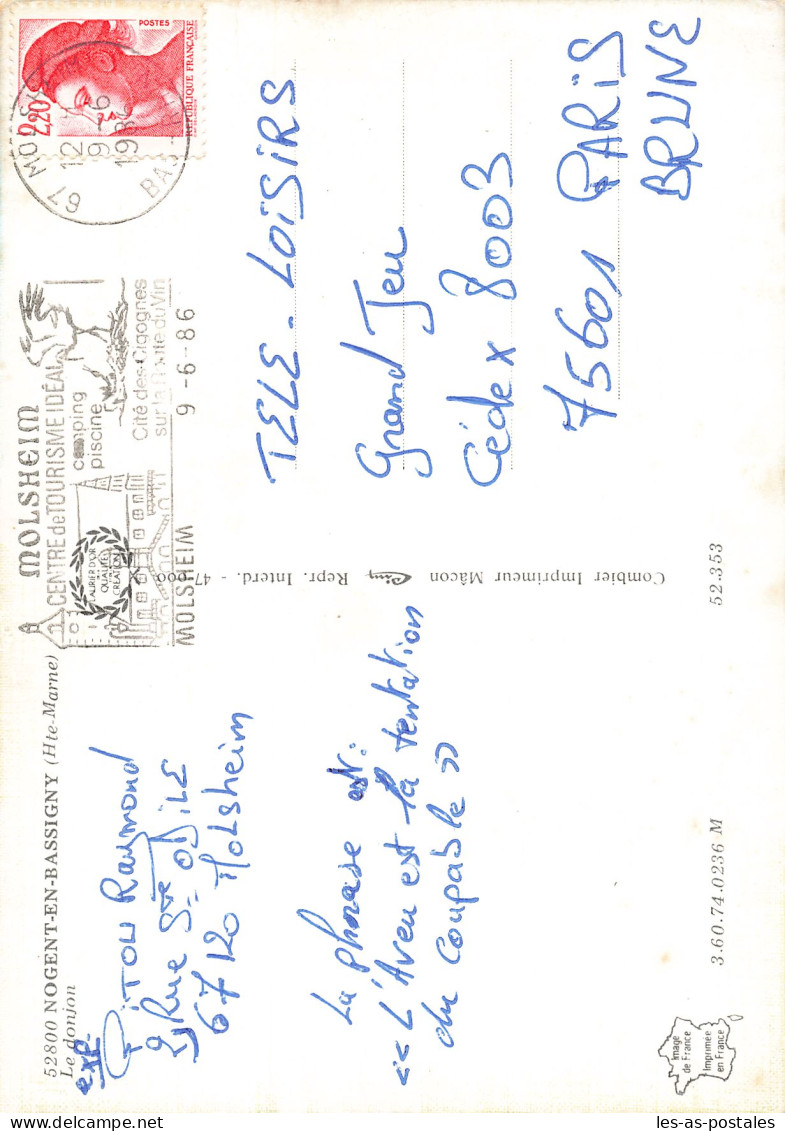 52800 NOGENT-EN-BASSIGNY (Hte-Marne)
Le donjon
exp.
PITOU Raymond
Rue Ste ODiLE
67120 Molsheim
La phrase est:
« L'Aveu est la tentation
du Coupable »
Image
de France
Imprimée
en France
3.60.74.0236 M
52.353
Combier Imprimeur Mâcon Cim Repr. Interd. - 47.000
MOLSHEIM
CENTRE de TOURISME IDÉAL
camping
piscine
LAURIER D'OR
QUALITÉ
CRÉATION
Cité des Cigognes
sur la Route du Vin
MOLSHEIM 9-6-86
67 MOLSHEIM
12 H
9-6
1986
BAS-RHIN
2,20
POSTES
REPUBLIQUE FRANÇAISE
TELE-LOiSiRS
Grand Jeu
Cédex 8003
75601 PARiS
BRUNE
les-as-postales